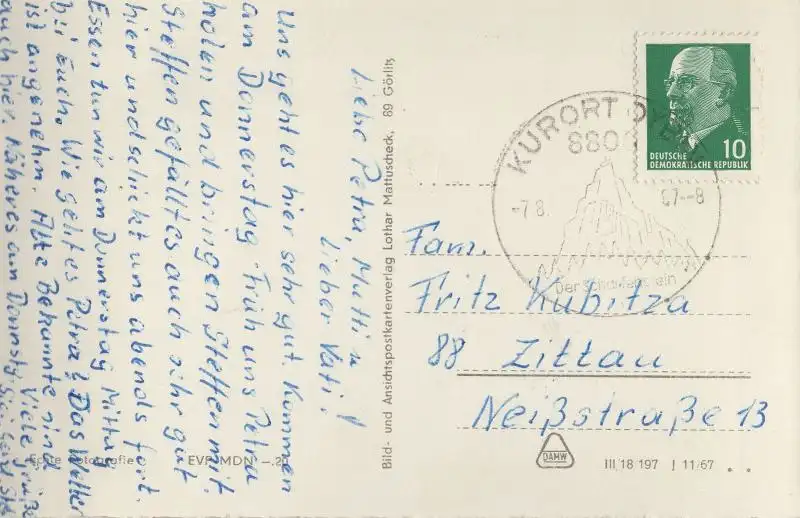 Liebe Petra, Mutti u.
lieber Vati!
Uns geht es hier sehr gut. Kommen
am Donnerstag früh uns Petra
holen und bringen Steffen mit.
Steffen gefällt es auch sehr gut
hier und schickt uns abends fort.
Essen tun wir am Donnerstag Mittag
bei Euch. Wie geht es Petra? Das Wetter
ist angenehm. Alte Bekannte sind
auch hier. Näheres am Donnstg. Viele Grüße
Echte Fotografie
EVP MDN –.20
Bild- und Ansichtspostkartenverlag Lothar Mattuscheck, 89 Görlitz
DEUTSCHE
DEMOKRATISCHE REPUBLIK
10
KURORT OYBIN
8806
-7.8. 67--8
Der Scharfenstein
Fam.
Fritz Kubitza
88 Zittau
Neißstraße 13
DAMW
III 18 197 J 11/67